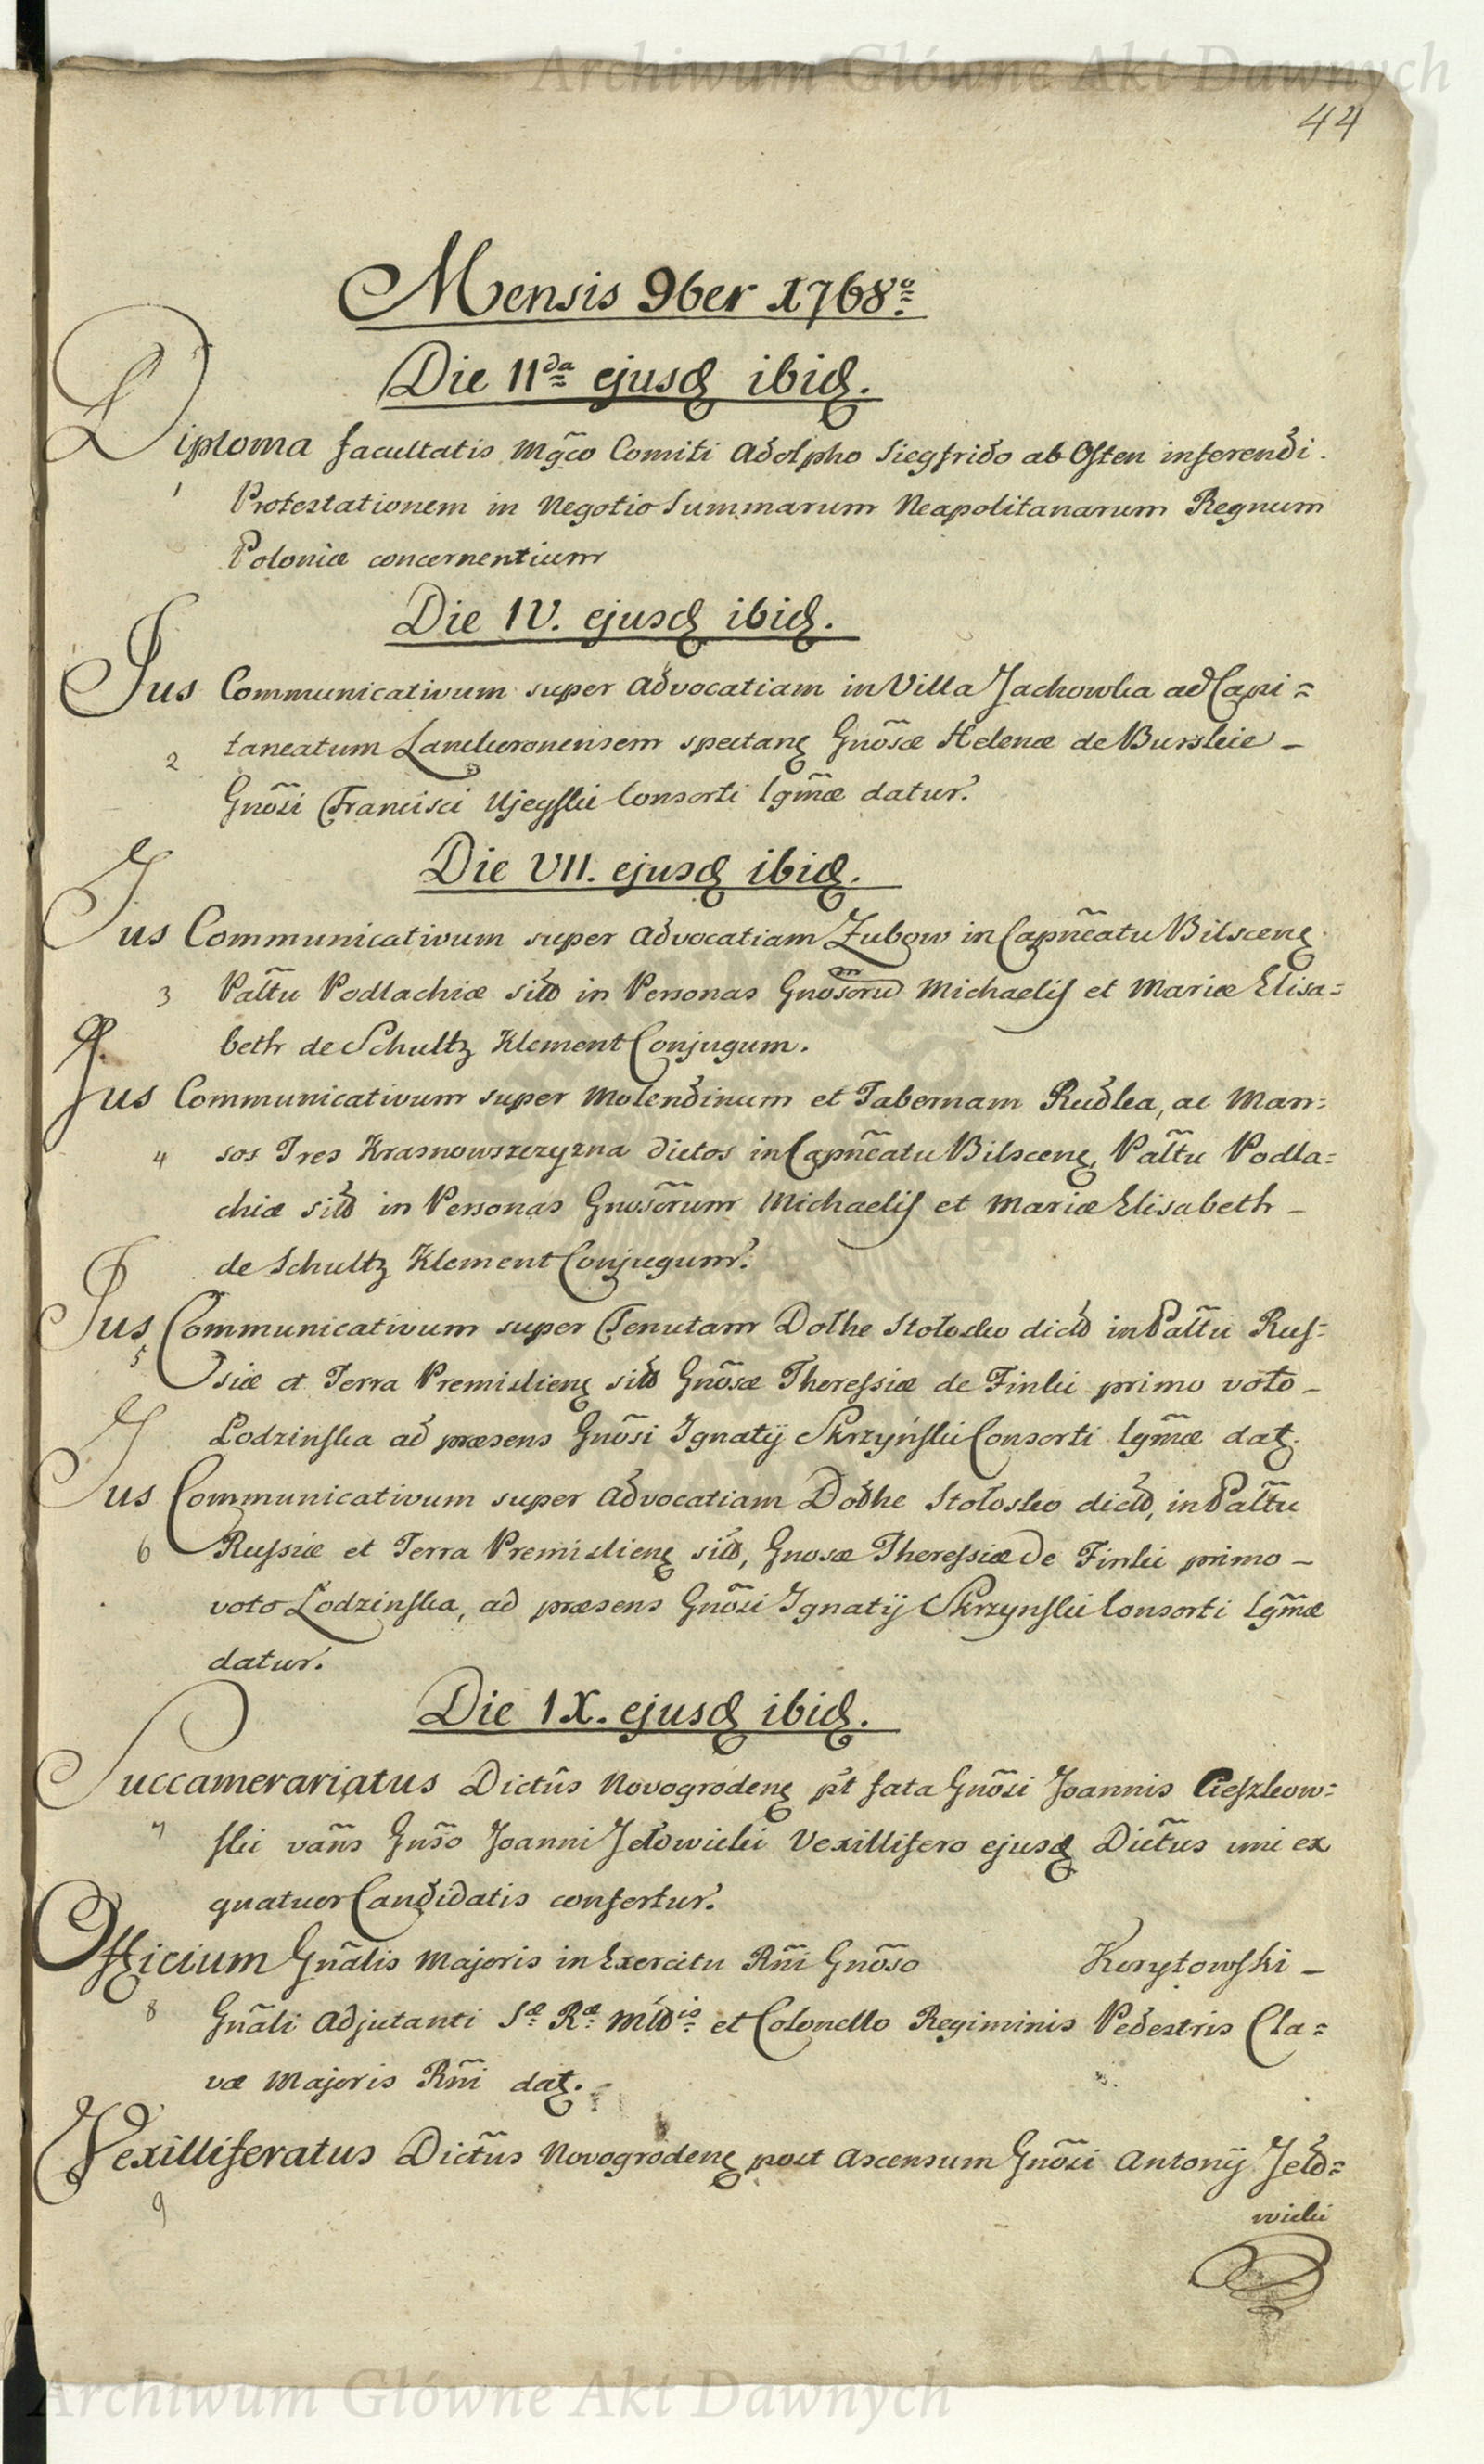 Archiwum Główne Akt Dawnych
44
Mensis 9ber 1768º
Die IIda ejusd ibid.
Diploma facultatis Mgco Comiti Adolpho Siegfrido ab Osten inferendi
1 Protestationem in Negotio Summarum Neapolitanarum Regnum
Poloniæ concernentium
Die IV. ejusd ibid.
Jus Communicativum super Advocatiam in Villa Jachowka ad Capi=
2 taneatum Lanckoronensem spectang Gnosæ Helenæ de Burskie –
Gnosi Francisci Ujeyski Consorti Lgmæ datur.
Die VII. ejusd ibid.
Jus Communicativum super Advocatiam Zubow in Capneatu Bilsceng
3 Paltu Podlachiæ sitd in Personas Gnosoru Michaelis et Mariæ Elisa=
beth de Schultz Klement Conjugum.
Jus Communicativum super Molendinum et Tabernam Rudka, ac Man=
4 sos Tres Krasnowszczyzna dictos in Capneatu Bilsceng, Paltu Podla=
chiæ sitd in Personas Gnosorum Michaelis et Mariæ Elisabeth –
de Schultz Klement Conjugum.
Jus Communicativum super Tenutam Dolhe Stołosko dictd in Paltu Rus=
5 siæ et Terra Premislieng sitd Gnosæ Theressiæ de Finki primo voto –
Lodzinska ad præsens Gnosi Ignatij Skrzyński Consorti Lgmæ datg.
Jus Communicativum super Advocatiam Dolhe Stołosko dictd, in Paltu
6 Russiæ et Terra Premislieng sitd, Gnosæ Theressiæ de Finki primo –
voto Lodzinska, ad præsens Gnosi Ignatij Skrzynski Consorti Lgmæ
datur.
Die IX. ejusd ibid.
Succamerariatus Dictus Novogrodeng pt fata Gnosi Joannis Cieszkow=
7 ski vans Gnso Joanni Jełowicki Vexillifero ejusd Dictus uni ex
quatuor Candidatis confertur.
Officium Gnalis Majoris in Exercitu Rni Gnoso Korytowski –
8 Gnali Adjutanti Sæ Ræ Mtdis et Colonello Regiminis Pedestris Cla=
væ Majoris Rni datg.
Vexilliferatus Dictus Novogrodeng post Ascensum Gnosi Antonij Jeło=
9
wicki
Archiwum Główne Akt Dawnych